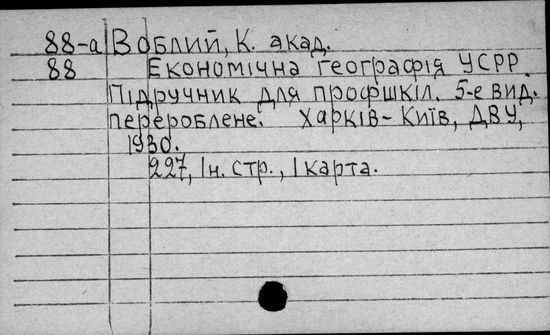 88-а Воблий, К. акад.
88 Економічна географія УСРР
Підручник для профшкіл. 5-е вид.
перероблене. Харків-Київ, ДВУ,
1930.
227, Ін. стр., 1 карта.